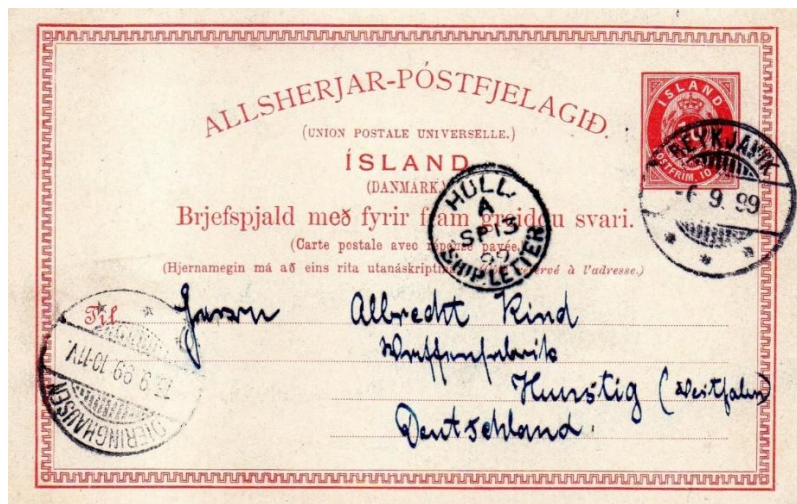 ALLSHERJAR-PÓSTFJELAGIÐ.
(UNION POSTALE UNIVERSELLE.)
ÍSLAND
(DANMARK.)
Brjefspjald með fyrir fram greiddu svari.
(Carte postale avec réponse payée.)
(Hjernamegin má að eins rita utanáskriptina. réservé à l'adresse.)
ÍSLAND
PÓSTFRIM. 10
REYKJAVIK
-6.9.99
HULL
A
SP 13
99
SHIP-LETTER
Til Herrn Albrecht Kind
Waffenfabrik
Hunstig (Westfalen)
Deutschland.
DIERINGHAUSEN
15.9.99.10-11V.